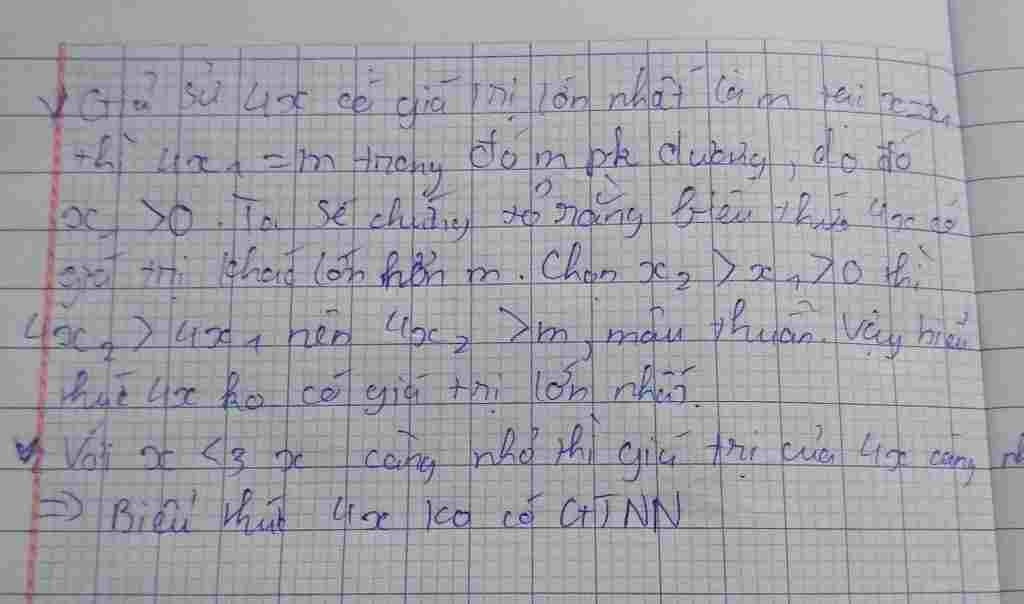 Giả sử 4x có giá trị lớn nhất là m tại x=x₁
thì 4x₁ = m trong đó m pk dương, do đó
x₁ >0. Ta sẽ chứng tỏ rằng biểu thức 4x có
giá trị khác lớn hơn m. Chọn x₂ >x₁ >0 thì
4x₂ > 4x₁ nên 4x₂ >m, mâu thuẫn. Vậy biểu
thức 4x ko có giá trị lớn nhất.
Với x <3 x càng nhỏ thì giá trị của 4x càng
=> Biểu thức 4x ko có GTNN